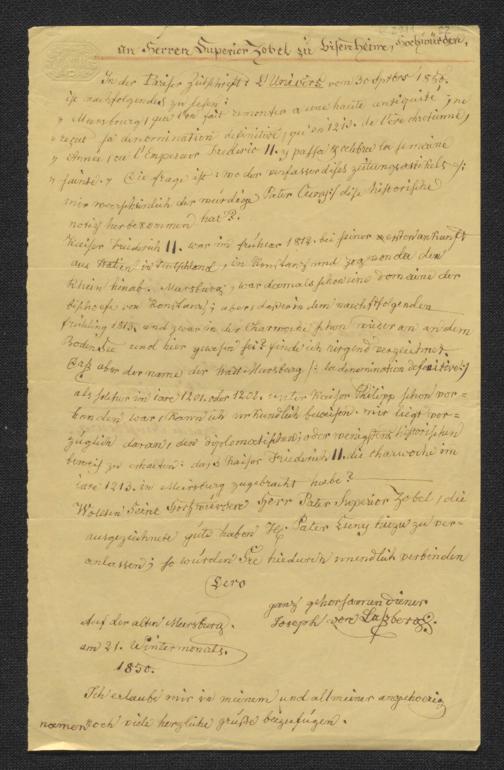 an Herren Superior Zobel zu Bisenheime, Hochwürden,
In der Pariser Zeitschrift: L'Univers vom 30 Sptbers 1850.
ist nachfolgendes zu lesen:
„ Mersburg, que l'on fait remonter a une haute antiquité, ne
„ reçut sa denomination definitive, qu'en 1213. de l'ère chretienne,
„ Année, ou l'Empereur Frederic II. y passa & celebra la semaine
„ sainte. „ Die frage ist: wo der verfasser dises zeitungsartikels /:
mir warscheinlich der würdige Pater :/ dise historische
notiz herbekommen hat?.
Kaiser Friderich II. war im frühear 1212. bei seiner ersten ankunft
aus Italien in Teutschland, in Konstanz und zog von da den
Rhein hinab. Mersburg, war damals schon eine domaine der
bischoefe von Konstanz; aber daß er in dem naechstfolgenden
frühling 1213. und zwar in der Charwoche schon wieder an dem
Bodensee und hier gewesen sei? finde ich nirgend verzeichnet.
Daß aber der name der Statt Mersburg /: la denomination definitive :/
als solcher im iare 1201. oder 1202. unter Kaiser Philipp schon vor-
handen war, kann ich urkundlich beweisen. mir liegt vor-
züglich daran, den diplomatischen, oder wenigstens historischen
beweis zu erhalten: daß Kaiser Friderich II. die charwoche im
iare 1213. in Mersburg zugebracht habe?
Wollten Seine Hochwürden Herr Pater Superior Zobel, die
ausgezeichnete güte haben Hr. Pater hiezu zu ver-
anlassen; so würden Sie hiedurch unendlich verbinden
Dero
ganz gehorsamen diener
Joseph von Laßberg.
Auf der alten Mersburg.
am 21. Wintermonats.
1850.
Ich erlaube mir in meinem und all meiner angehoerig
namen noch viele herzliche grüße beizufügen.